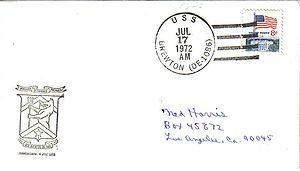 USS
JUL
17
1972
AM
BREWTON (DE-1086)
8c
Ned Harris
Box 45872
Los Angeles, Ca. 90045